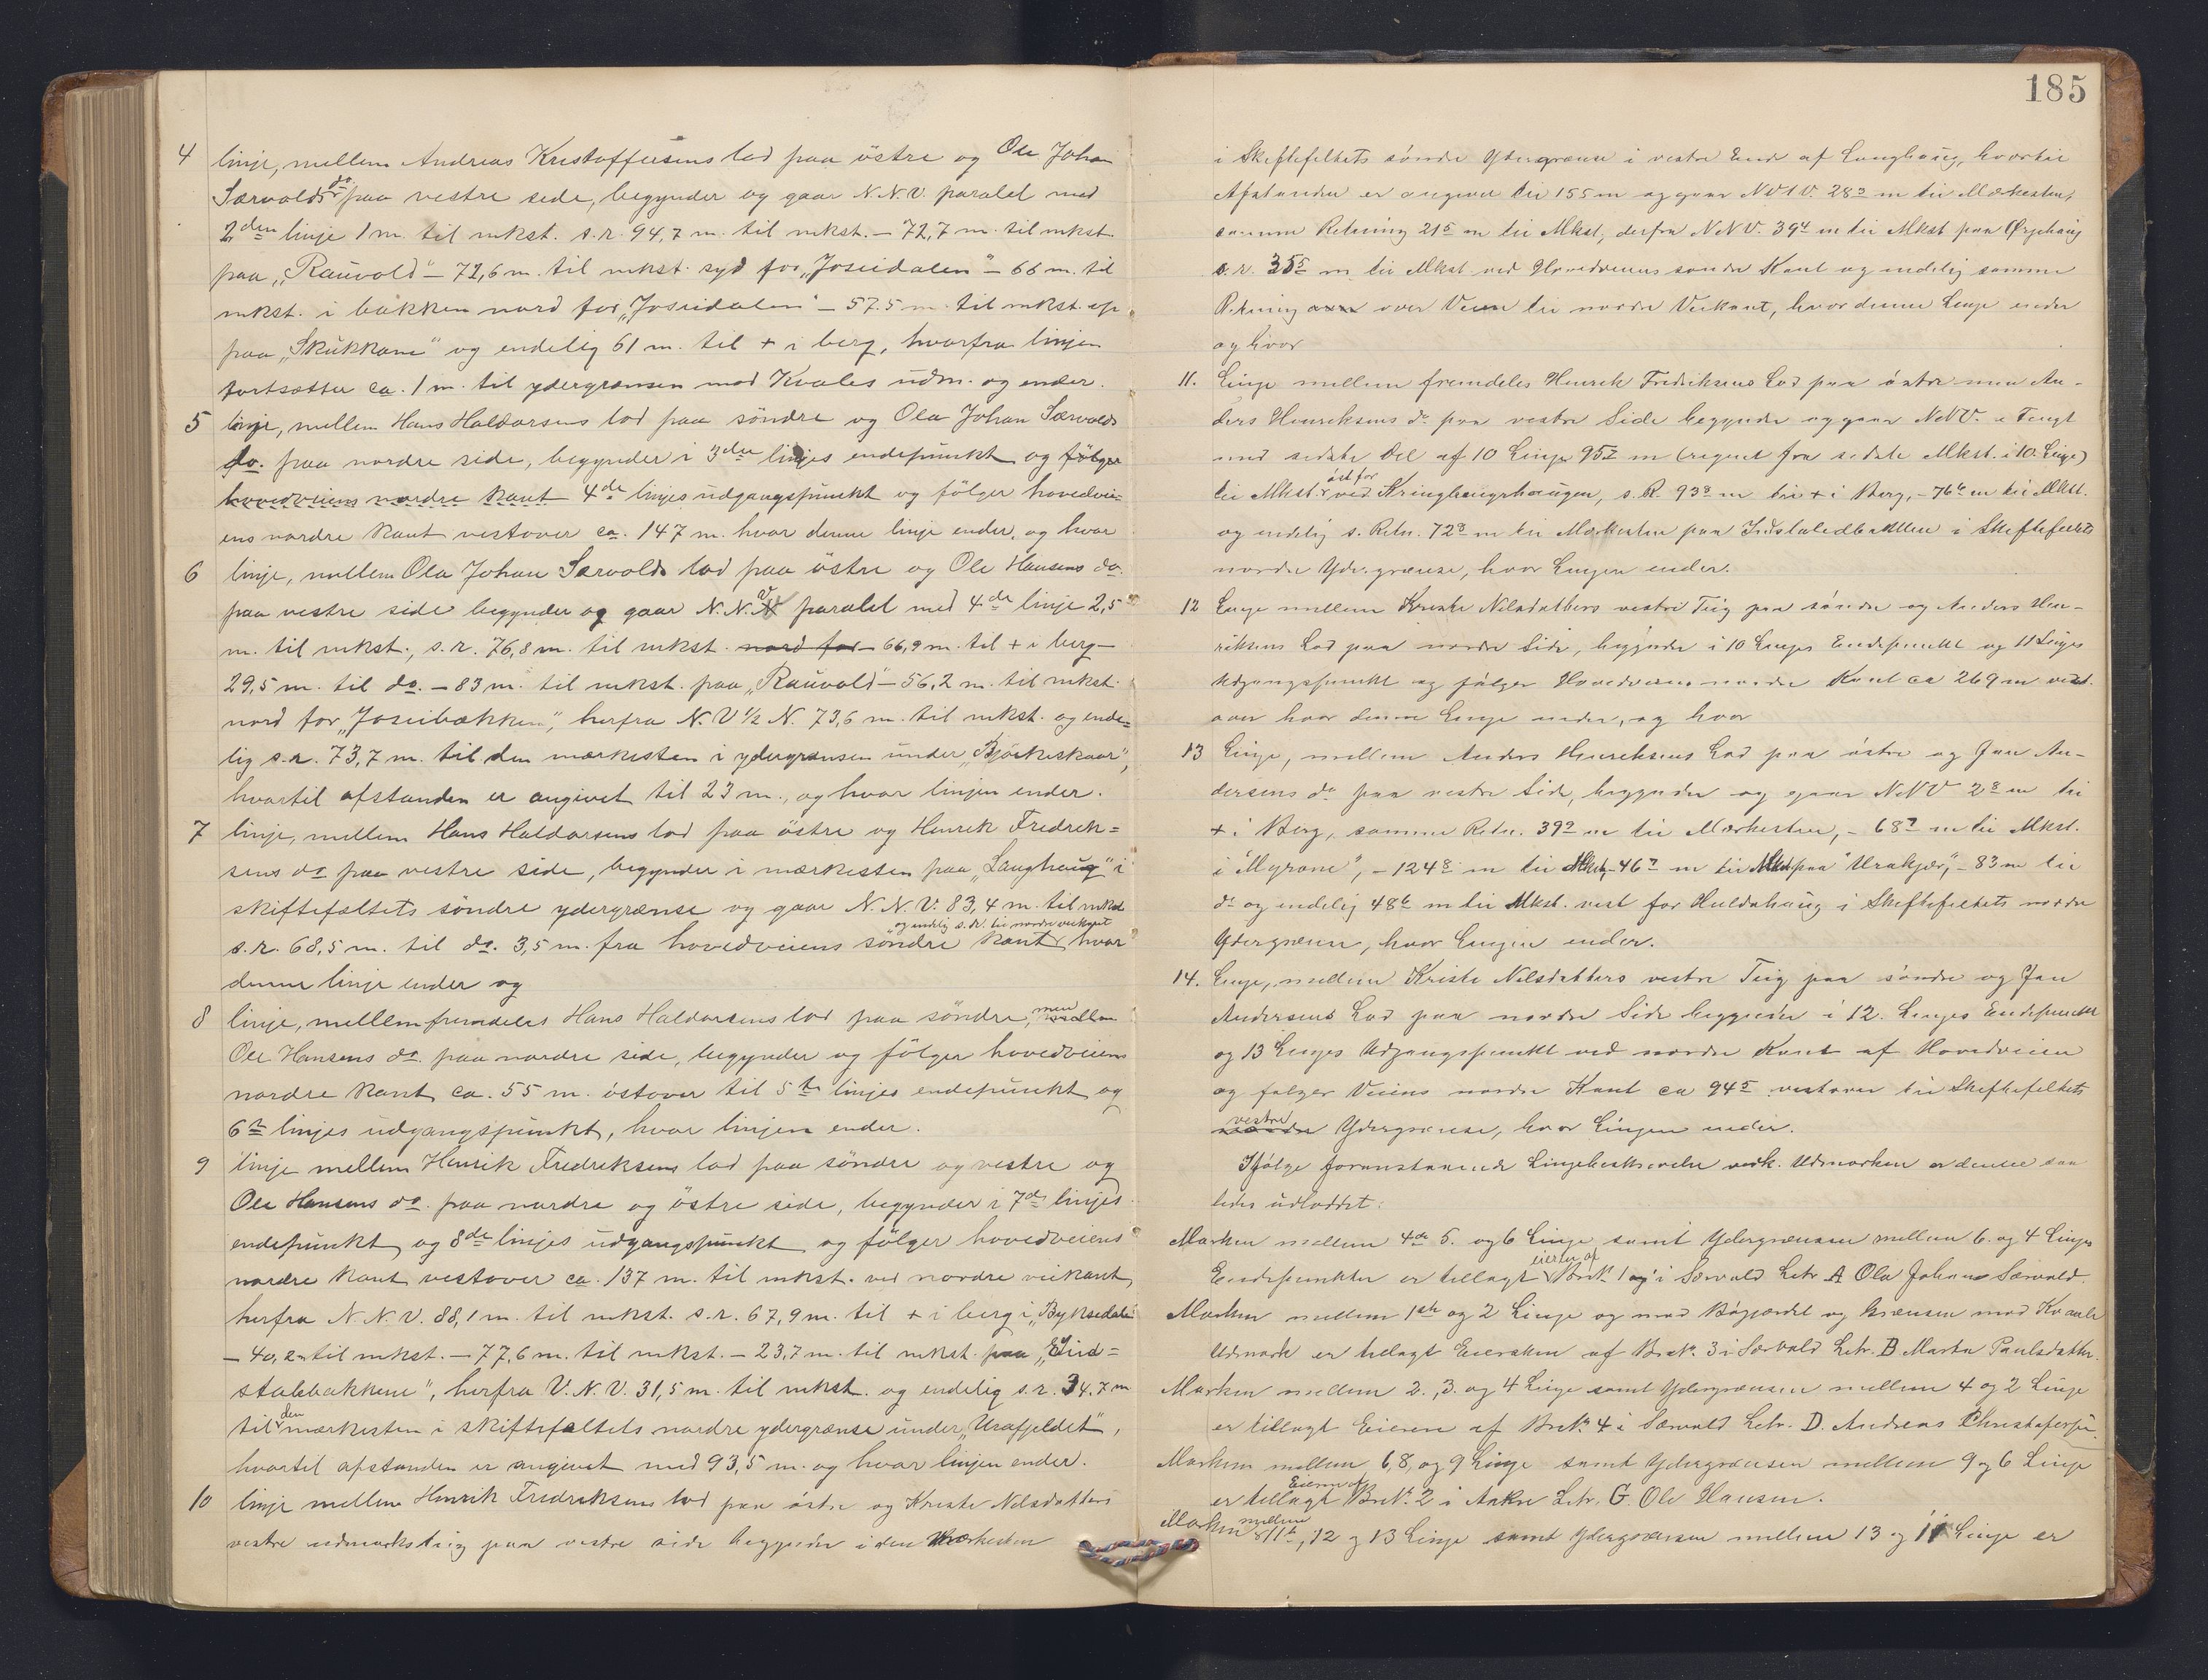 4 linje, mellem Andreas Kristoffersens lod paa östre og Ole Johan
Særvolds do paa vestre side, begynder og gaar N.N.V. paralel med
2den linje 1 m. til mkst. s.r. 94,7 m. til mkst. – 72,7 m. til mkst.
paa „Rauvold" – 72,6 m. til mkst. syd for „Joseidalen" – 66 m. til
mkst. i bakken nord for „Joseidalen" – 57.5 m. til mkst.
paa „Skukkane" og endelig 61 m. til + i berg, hvorfra linjen
fortsætter ca. 1 m. til ydergrænsen mod Kvales udm. og ender.
5 linje, mellem Hans Haldorsens lod paa söndre og Ola Johan Særvolds
do. paa nordre side, begynder i 3die linjes endepunkt og fölger
hovedveiens nordre kant 4de linjes udgangspunkt og fölger hovedvei-
ens nordre kant vestover ca. 147 m. hvor denne linje ender, og hvor
6 linje, mellem Ola Johan Særvolds lod paa östre og Ole Hansens do.
paa vestre side begynder og gaar N.N.V. paralel med 4de linje 2,5
m. til mkst., s.r. 76,8 m. til mkst. nord for – 66,9 m. til + i berg –
29,5 m. til do. – 83 m. til mkst. paa „Rauvold" – 56,2 m. til mkst.
nord for „Joseibækken", herfra N.V ½ N. 73,6 m. til mkst. og ende=
lig s.r. 73,7 m. til den mærkesten i ydergrænsen under „Björkeskaar",
hvortil afstanden er angivet til 23 m., og hvor linjen ender.
7 linje, mellem Hans Haldorsens lod paa östre og Henrik Fredrik=
sens do paa vestre side, begynder i mærkesten paa „Langhaug" i
skiftefæltets söndre ydergrænse og gaar N.N.V. 83,4 m. til mkst
og endelig s.r. til nordre veikant
s.r. 68,5 m. til do. 3,5 m. fra hovedveiens söndre kant hvor
denne linje ender og
8 linje, mellem fremdeles Hans Haldorsens lod paa söndre, men
Ole Hansens do. paa nordre side, begynder og fölger hovedveiens
nordre kant ca. 55 m. östover til 5te linjes endepunkt og
6te linjes udgangspunkt, hvor linjen ender.
9 linje mellem Henrik Fredriksens lod paa söndre og vestre og
Ole Hansens do. paa nordre og östre side, begynder i 7de linjes
endepunkt og 8de linjes udgangspunkt og fölger hovedveiens
nordre kant vestover ca. 137 m. til mkst. ved nordre veikant,
herfra N.N.V. 88,1 m. til mkst. s.r. 67,9 m. til + i berg i „Byksedalen"
– 40,2 m til mkst. – 77,6 m. til mkst. – 23,7 m. til mkst. paa
stølsbakkene", herfra V.N.V. 31,5 m. til mkst. og endelig s.r. 34,7 m
til den mærkesten i skiftefæltets nordre ydergrænse under „Urafjeldet",
hvortil afstanden er angivet med 93,5 m. og hvor linjen ender.
10 linje mellem Henrik Fredriksens lod paa östre og Kriste Nilsdatters
vestre udmarksteig paa vestre side begynder i den Mærkesten
185
i Skiftefeltets søndre Ydergrænse i vestre Ende af Langhaug, hvortil
Afstanden er angivet til 155 m og gaar NVtV. 28⁹ m til Mærkesten,
samme Retning 21⁵ m til Mkst., derfra NNV. 39⁴ m til Mkst paa
s.r. 35⁵ m til Mkst ved Hovedveiens søndre Kant og endelig samme
Retning over Veien til nordre Veikant, hvor denne Linje ender
og hvor
11. Linje mellem fremdeles Henrik Fredriksens Lod paa østre men An-
ders Henriksens do paa vestre Side begynder og gaar NNV. i Flugt
med sidste Del af 10 Linje 95⁷ m (regnet fra sidste Mkst. i 10. Linje)
øst for
til Mkst. ved Kringlaugrhaugen, s.R. 93⁸ m til + i Berg, – 76⁶ m til Mkst.
og endelig s. Retn. 72⁸ m til Mærkesten paa i Skiftefeltets
nordre Ydergrænse, hvor Linjen ender.
12 Linje mellem Kriste Nilsdatters vestre Teig paa søndre og Anders Hen-
riksens Lod paa nordre Side, begynder i 10 Linjes Endepunkt og 11 Linjes
Udgangspunkt og følger Hovedveiens nordre Kant ca 269 m vest-
over hvor denne Linje ender, og hvor
13 Linje, mellem Anders Henriksens Lod paa østre og Jan An-
dersens do paa vestre Side, begynder og gaar NNV 2⁸ m til
+ i Berg, samme Retn. 39² m til Mærkesten, – 68⁷ m til Mkst.
i "Myrane", – 124⁸ m til Mkst, – 46⁷ m til Mkst paa "Urakjær", – 83 m til
do og endelig 48⁶ m til Mkst. vest for Huldahaug i Skiftefeltets nordre
Ydergrænse, hvor Linjen ender.
14. Linje, mellem Kriste Nilsdatters vestre Teig paa søndre og Jan
Andersens Lod paa nordre Side begynder i 12. Linjes Endepunkt
og 13 Linjes Udgangspunkt ved nordre Kant af Hovedveien
og følger Veiens nordre Kant ca 94⁵ vestover til Skiftefeltets
vestre
Ydergrænse, hvor Linjen ender.
Ifølge foranstaaende Linjebeskrivelse vedk. Udmarken er denne saa
ledes udloddet:
Marken mellem 4de 5. og 6 Linje samt Ydergrænsen mellem 6. og 4 Linjes
eieren af
Endepunkter er tillagt Brnr. 1 i Særvold Litr. A Ola Johans Særvold.
Marken mellem 1ste og 2 Linje og mod Bøgjærdet og Grænsen mod Kvale
Udmark er tillagt Eiersken af Brnr. 3 i Særvold Litr. B Marta Paulsdatter.
Marken mellem 2., 3. og 4 Linje samt Ydergrænsen mellem 4 og 2 Linje
er tillagt Eieren af Brnr. 4 i Særvold Litr. D. Andreas Christofersen.
Marken mellem 6, 8, og 9 Linje samt Ydergrænsen mellem 9 og 6 Linje
Eieren af
er tillagt Brnr. 2 i Aakre Litr. G. Ole Hansen.
Marken mellem 11te, 12 og 13 Linje samt Ydergrænsen mellem 13 og 11 Linje er